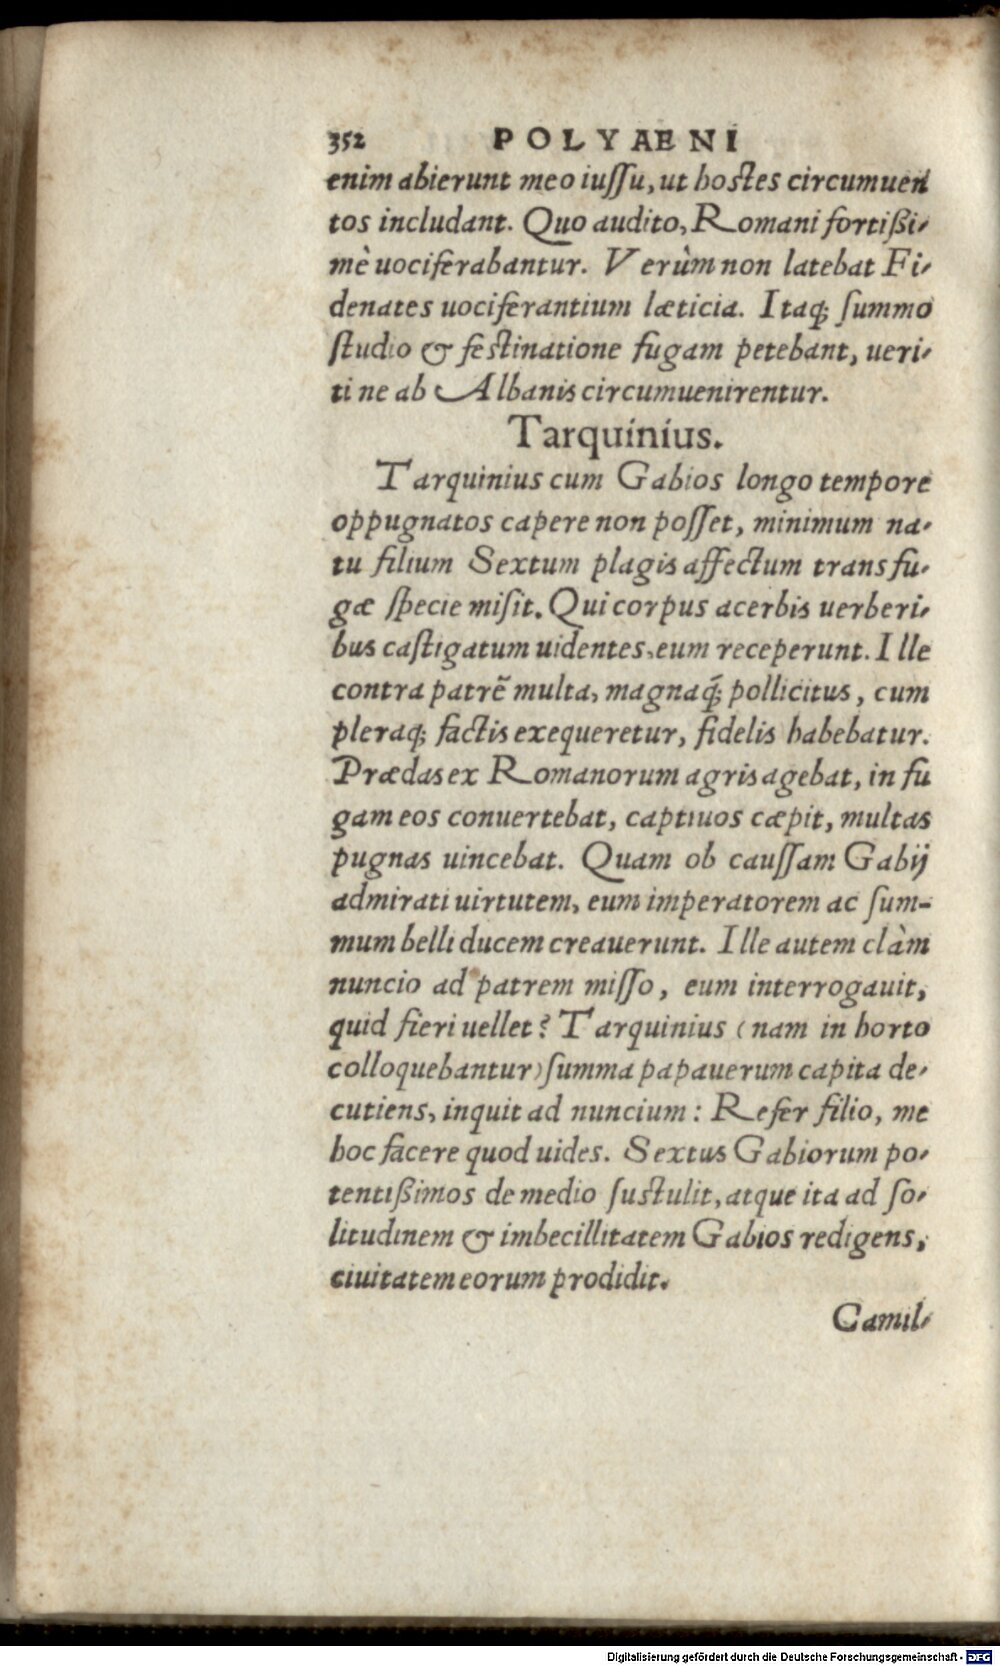 352 POLYAENI
enim abierunt meo iussu, ut hostes circumuen
tos includant. Quo audito, Romani fortißi-
mè uociferabantur. Verùm non latebat Fi-
denates uociferantium læticia. Itaq; summo
studio & festinatione fugam petebant, ueri-
ti ne ab Albanis circumuenirentur.
Tarquinius.
Tarquinius cum Gabios longo tempore
oppugnatos capere non posset, minimum na-
tu filium Sextum plagis affectum transfu-
gæ specie misit. Qui corpus acerbis uerberi-
bus castigatum uidentes, eum receperunt. Ille
contra patrẽ multa, magnaq́; pollicitus, cum
pleraq; factis exequeretur, fidelis habebatur.
Prædas ex Romanorum agris agebat, in fu
gam eos conuertebat, captiuos cæpit, multas
pugnas uincebat. Quam ob caussam Gabij
admirati uirtutem, eum imperatorem ac sum-
mum belli ducem creauerunt. Ille autem clàm
nuncio ad patrem misso, eum interrogauit,
quid fieri uellet? Tarquinius (nam in horto
colloquebantur) summa papauerum capita de-
cutiens, inquit ad nuncium: Refer filio, me
hoc facere quod uides. Sextus Gabiorum po-
tentißimos de medio sustulit, atque ita ad so-
litudinem & imbecillitatem Gabios redigens,
ciuitatem eorum prodidit.
Camil-
Digitalisierung gefördert durch die Deutsche Forschungsgemeinschaft - DFG